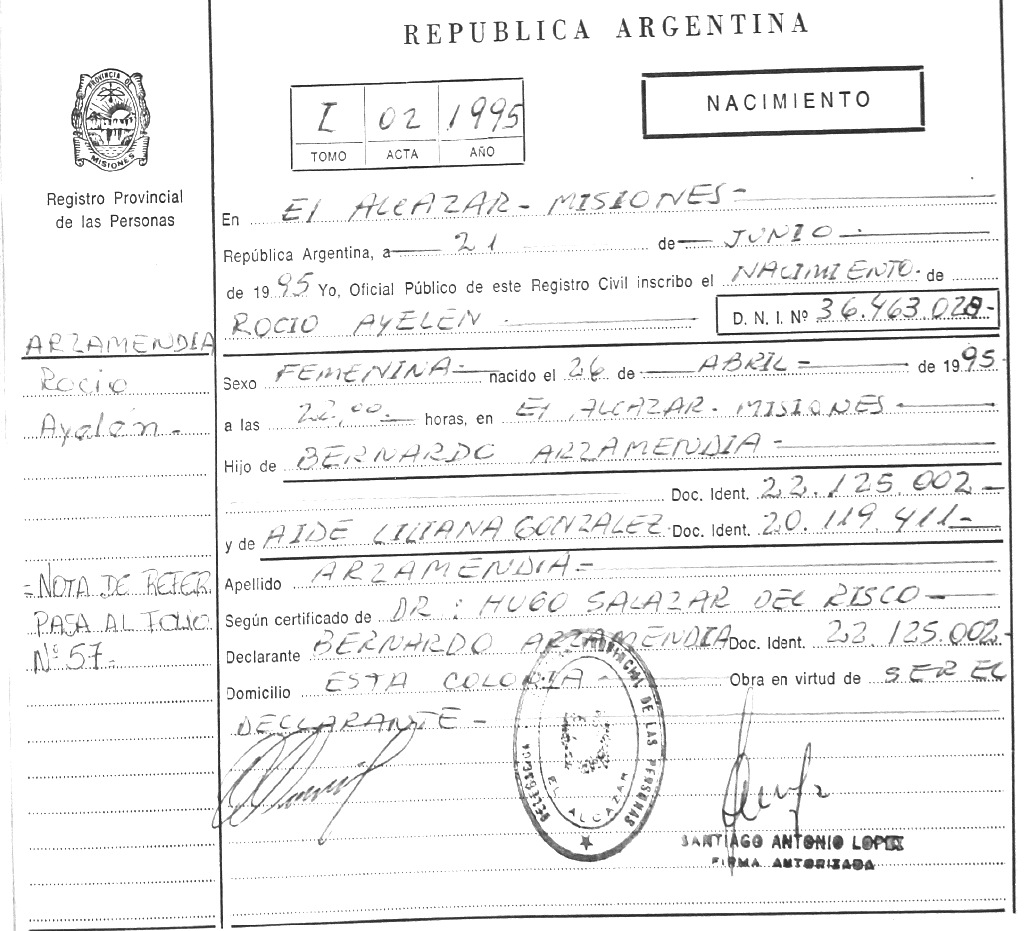 REPUBLICA ARGENTINA
PROVINCIA DE
MISIONES
Registro Provincial
de las Personas
I 02 1995
TOMO ACTA AÑO
NACIMIENTO
En El ALCAZAR - MISIONES -
República Argentina, a 21 de JUNIO
de 1995 Yo, Oficial Público de este Registro Civil inscribo el NACIMIENTO de
ROCIO AYELEN D. N. I. Nº 36.463.028-
ARZAMENDIA
Rocio
Ayelén -
Sexo FEMENINA nacido el 26 de ABRIL de 1995
a las 22,00 horas, en El ALCAZAR - MISIONES -
Hijo de BERNARDO ARZAMENDIA -
Doc. Ident. 22.125.002 -
y de AIDE LILIANA GONZALEZ Doc. Ident. 20.119.411 -
= NOTA DE REFER.
PASA AL FOLIO
Nº 57 -
Apellido ARZAMENDIA =
Según certificado de DR : HUGO SALAZAR DEL RISCO
Declarante BERNARDO ARZAMENDIA Doc. Ident. 22.125.002 -
Domicilio ESTA COLONIA Obra en virtud de SER EL
DECLARANTE -
PROVINCIAL DE LAS PERSONAS
EL ALCAZAR
SANTIAGO ANTONIO LOPEZ
FIRMA AUTORIZADA